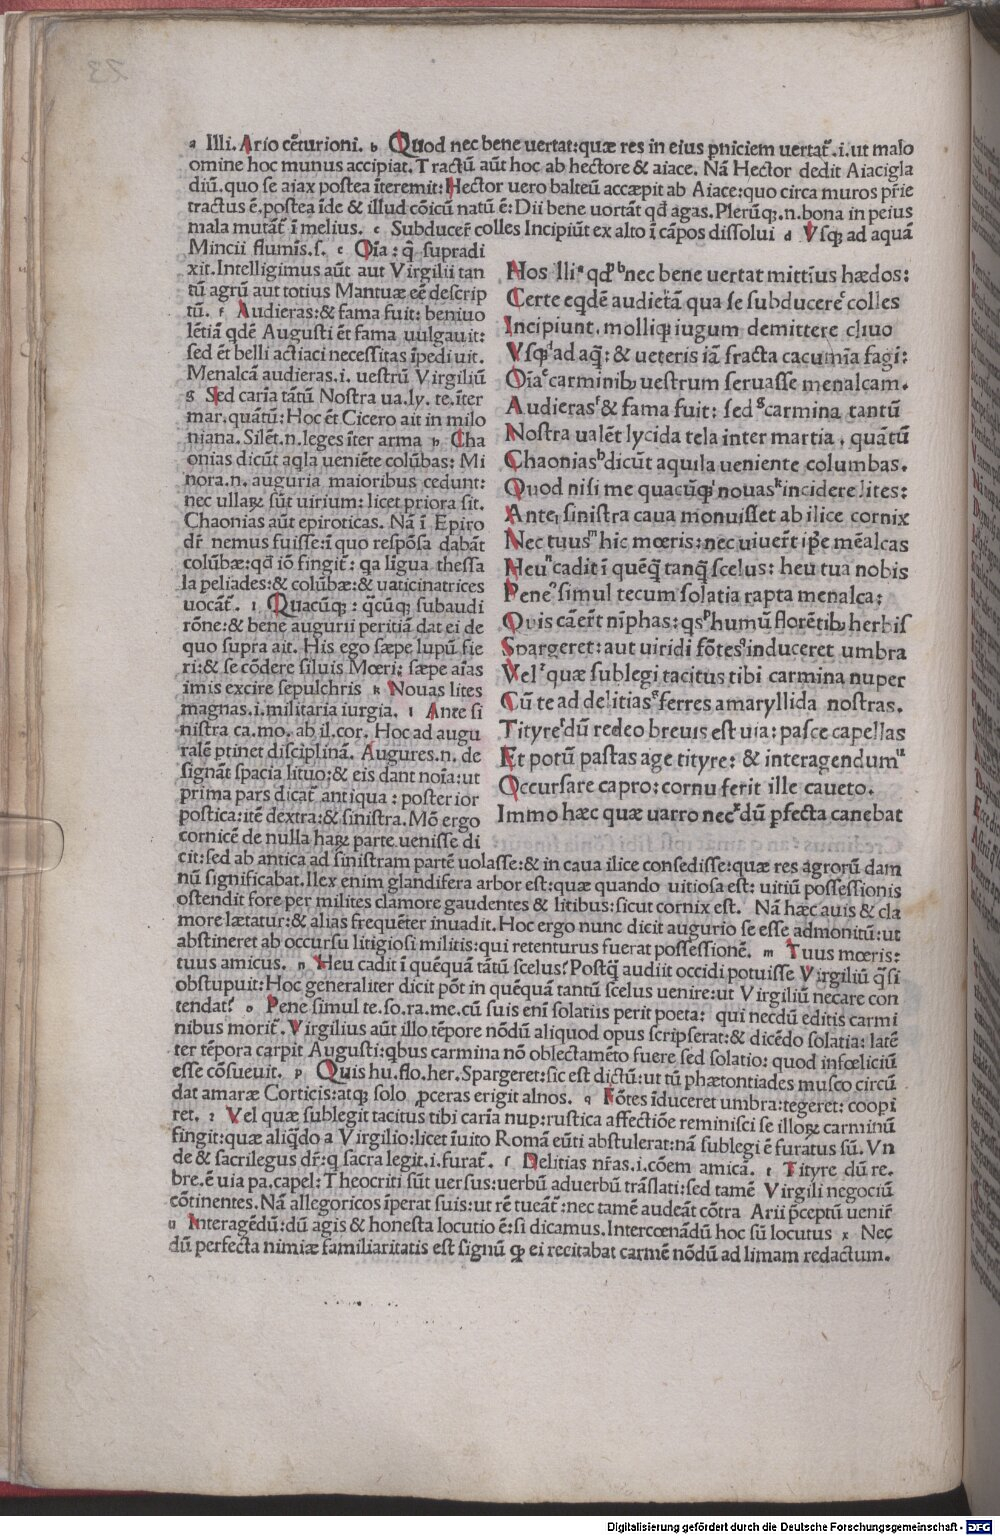 a Illi. Ario cēturioni. b Quod nec bene uertat: quæ res in eius pniciem uertat̄. i. ut malo
omine hoc munus accipiat. Tractū aūt hoc ab hectore & aiace. Nā Hector dedit Aiaci gla
diū. quo se aiax postea īteremit: Hector uero balteū accæpit ab Aiace: quo circa muros pr̄ie
tractus ē. postea īde & illud cōicū natū ē: Dii bene uortāt qđ agas. Plerūqꝫ. n. bona in peius
mala mutāt̄ ī melius. c Subducer̄ colles Incipiūt ex alto ī cāpos dissolui d Vsqꝫ ad aquā
Mincii flumīs. s. e Oīa: q̄ supradi
xit. Intelligimus aūt aut Virgilii tan
tū agrū aut totius Mantuæ eē descrip
tū. f Audieras: & fama fuit: beniuo
lētiā qdē Augusti ēt fama uulgauit:
sed ēt belli actiaci necessitas īpediuit.
Menalcā audieras. i. uestrū Virgiliū
g Sed carīa tātū Nostra ua. ly. te. īter
mar. quātū: Hoc ēt Cicero ait in milo
niana. Silēt. n. leges īter arma h Cha
onias dicūt aqla ueniēte colūbas: Mi
nora. n. auguria maioribus cedunt:
nec ullaꝝ sūt uirium: licet priora sit.
Chaonias aūt epiroticas. Nā ī Epiro
dr̄ nemus fuisse: ī quo respōsa dabāt
colūbæ: qđ iō fingit̄: qa līgua thessa
la peliades: & colūbæ: & uaticinatrices
uocāt̄. i Quacūqꝫ: q̄cūqꝫ subaudi
rōne: & bene augurii peritiā dat ei de
quo supra ait. His ego sæpe lupū fie
ri: & se cōdere siluis Mœri: sæpe aīas
imis excire sepulchris k Nouas lites
magnas. i. militaria iurgia. l Ante si
nistra ca. mo. ab il. cor. Hoc ad augu
ralē ptinet disciplinā. Augures. n. de
signāt spacia lituo: & eis dant noīa: ut
prima pars dicat̄ antiqua: posterior
postica: itē dextra: & sinistra. Mō ergo
cornicē de nulla haꝝ parte uenisse di
Nos Illiᵃ qđᵇ nec bene uertat mittīus hædos:
Certe eqdē audietā qua se subducereᶜ colles
Incipiunt. molliqꝫ iugum demittere cliuo
Vsqꝫᵈ ad aq̄: & ueteris iā fracta cacumīa fagi:
Oīaᵉ carminibꝫ uestrum seruasse menalcam.
Audierasᶠ & fama fuit: sedᵍ carmina tantū
Nostra ualēt lycida tela inter martia. quātū
Chaoniasʰ dicūt aquila ueniente columbas.
Quod nisi me quacūqꝫⁱ nouasᵏ incidere lites:
Anteˡ sinistra caua monuisset ab ilice cornix
Nec tuusᵐ hic mœris: nec uiuer̄t ip̄e mēalcas
Heuⁿ cadit ī quēq̄ tanq̄ scelus: heu tua nobis
Peneᵒ simul tecum solatia rapta menalca:
Quis cāer̄t nīphas: qsᵖ humū florētibꝫ herbis
Spargeret: aut uiridi fōtesᑫ induceret umbra
Velʳ quæ sublegi tacitus tibi carmina nuper
Cū te ad delitiasˢ ferres amaryllida nostras.
Tityreᵗ dū redeo breuis est uia: pasce capellas
Et potū pastas age tityre: & interagendumᵘ
Occursare capro: cornu ferit ille caueto.
Immo hæc quæ uarro necˣ dū pfecta canebat
cit: sed ab antica ad sinistram partē uolasse: & in caua ilice consedisse: quæ res agrorū dam
nū significabat. Ilex enim glandifera arbor est: quæ quando uitiosa est: uitiū possessionis
ostendit fore per milites clamore gaudentes & litibus: sicut cornix est. Nā hæc auis & cla
more lætatur: & alias frequēter inuadit. Hoc ergo nunc dicit augurio se esse admonitū: ut
abstineret ab occursu litigiosi militis: qui retenturus fuerat possessionē. m Tuus mœris:
tuus amicus. n Heu cadit ī quēquā tātū scelus? Postq̄ audiit occidi potuisse Virgiliū q̄si
obstupuit: Hoc generaliter dicit pōt in quēquā tantū scelus uenire: ut Virgiliū necare con
tendat? o Pene simul te. so. ra. me. cū suis enī solatiis perit poeta: qui necdū editis carmi
nibus morit̄. Virgilius aūt illo tēpore nōdū aliquod opus scripserat: & dicēdo solatia: latē
ter tēpora carpit Augusti: qbus carmina nō oblectamēto fuere sed solatio: quod infœliciū
esse cōsueuit. p Quis hu. flo. her. Spargeret: sic est dictū: ut tū phætontiades musco circū
dat amaræ Corticis: atqꝫ solo pceras erigit alnos. q Fōtes īduceret umbra: tegeret: coopi
ret. r Vel quæ sublegit tacitus tibi carīa nup: rustica affectiōe reminisci se illoꝝ carminū
fingit: quæ aliqđo a Virgilio: licet īuito Romā eūti abstulerat: nā sublegi ē furatus sū. Vn
de & sacrilegus dr̄: q sacra legit. i. furat̄. s Delitias nr̄as. i. cōem amicā. t Tityre dū re.
bre. ē uia pa. capel: Theocriti sūt uersus: uerbū aduerbū trāslati: sed tamē Virgili negociū
cōtinentes. Nā allegoricos īperat suis: ut rē tueāt̄: nec tamē audeāt cōtra Arii p̄ceptū uenir̄
u Interagēdū: dū agis & honesta locutio ē: si dicamus. Intercœnādū hoc sū locutus x Nec
dū perfecta nimiæ familiaritatis est signū ꝙ ei recitabat carmē nōdū ad limam redactum.
Digitalisierung gefördert durch die Deutsche Forschungsgemeinschaft - DFG